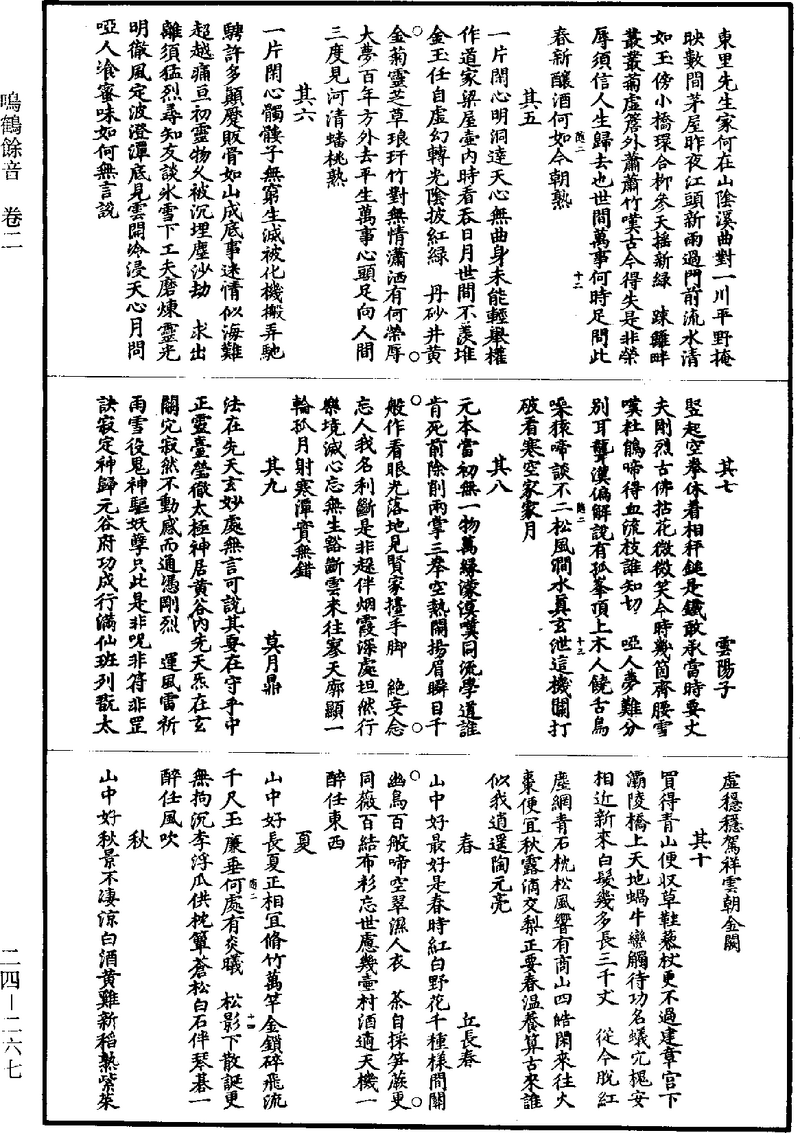 東里先生家何在山陰溪曲對一川平野掩
映數間茅屋昨夜江頭新雨過門前流水清
如玉傍小橋環合柳參天搖新綠　踈籬畔
叢叢菊虛簷外蕭蕭竹嘆古今得失是非榮
辱須信人生歸去也世間萬事何時足問此
春新釀酒何如今朝熟
其五
一片閑心明洞達天心無曲身未能輕舉權
作道家梁屋壺內時看吞日月世間不羨堆
金玉任自虛幻轉光陰披紅綠　丹砂井黃
金菊靈芝草琅玕竹對無情瀟洒有何榮辱
大夢百年方外去平生萬事心頭足向人間
三度見河清蟠桃熟
其六
一片閑心髑髏子無窮生滅被化機搬弄馳
騁許多顛蹷販骨如山成底事迷情似海難
超越痛亘初靈物久被沉埋塵沙劫　求出
離須猛烈尋知友談氷雪下工夫磨煉靈光
明徹風定波澄潭底見雲開冷浸天心月問
啞人飡蜜味如何無言說
其七　雲陽子
竪起空拳休着相秤鎚是鐵敢承當時要丈
夫剛烈古佛拈花微微笑今時幾箇齊腰雪
嘆杜鵑啼得血流枝誰知切　啞人夢難分
別耳聾漢偏解說有孤峯頂上木人饒舌鳥
噪猿啼談不二松風澗水真玄泄這機關打
破看寒空家家月
其八
元本當初無一物萬緣濛漠嘆同流學道誰
肯死前除削兩掌三拳空熱鬧揚眉瞬目千
般作看眼光落地見賢家擡手脚　絶妄念
忘人我名利斷是非趓伴烟霞深處坦然行
樂境滅心忘無生豁斷雲來往寥天廓顯一
輪孤月射寒潭實無錯
其九　莫月鼎
法在先天玄妙處無言可說其要在守乎中
正靈臺瑩徹太極神居黃谷內先天炁在玄
關穴寂然不動感而通憑剛烈　運風雷祈
雨雪役鬼神驅妖孽只此是非呪非符非罡
訣寂定神歸元谷府功成行滿仙班列翫太
虛穩穩駕祥雲朝金闕
其十
買得青山便収草鞋藜杖更不過建章宮下
灞陵橋上天地蝸牛蠻觸待功名蟻穴槐安
相近新來白髮幾多長三千丈　從今脫紅
塵網青石枕松風響有商山四皓閑來往火
棗便宜秋露滴交梨正要春温養算古來誰
似我逍遥陶元亮
春　丘長春
山中好最好是春時紅白野花千種樣間關
幽鳥百般啼空翠濕人衣　茶自採笋蕨更
同薇百結布衫忘世慮幾壺村酒適天機一
醉任東西
夏
山中好長夏正相宜脩竹萬竿金鎖碎飛流
千尺玉簾垂何處有炎曦　松影下散誕更
無拘沉李浮瓜供枕簟蒼松白石伴琴棊一
醉任風吹
秋
山中好秋景不淒涼白酒黃雞新稻熟紫茱
鳴鶴餘音　卷二
二四—二六七